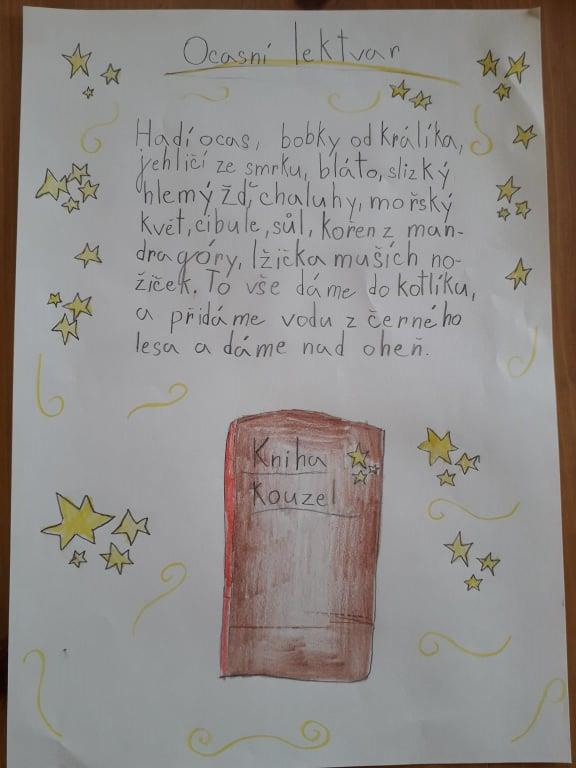 Ocasní lektvar
Hadí ocas, bobky od králíka,
jehličí ze smrku, bláto, slizký
hlemýžď, chaluhy, mořský
květ, cibule, sůl, kořen z man-
dragóry, lžička muších no-
žiček. To vše dáme do kotlíku,
a přidáme vodu z černého
lesa a dáme nad oheň.
Kniha
Kouzel